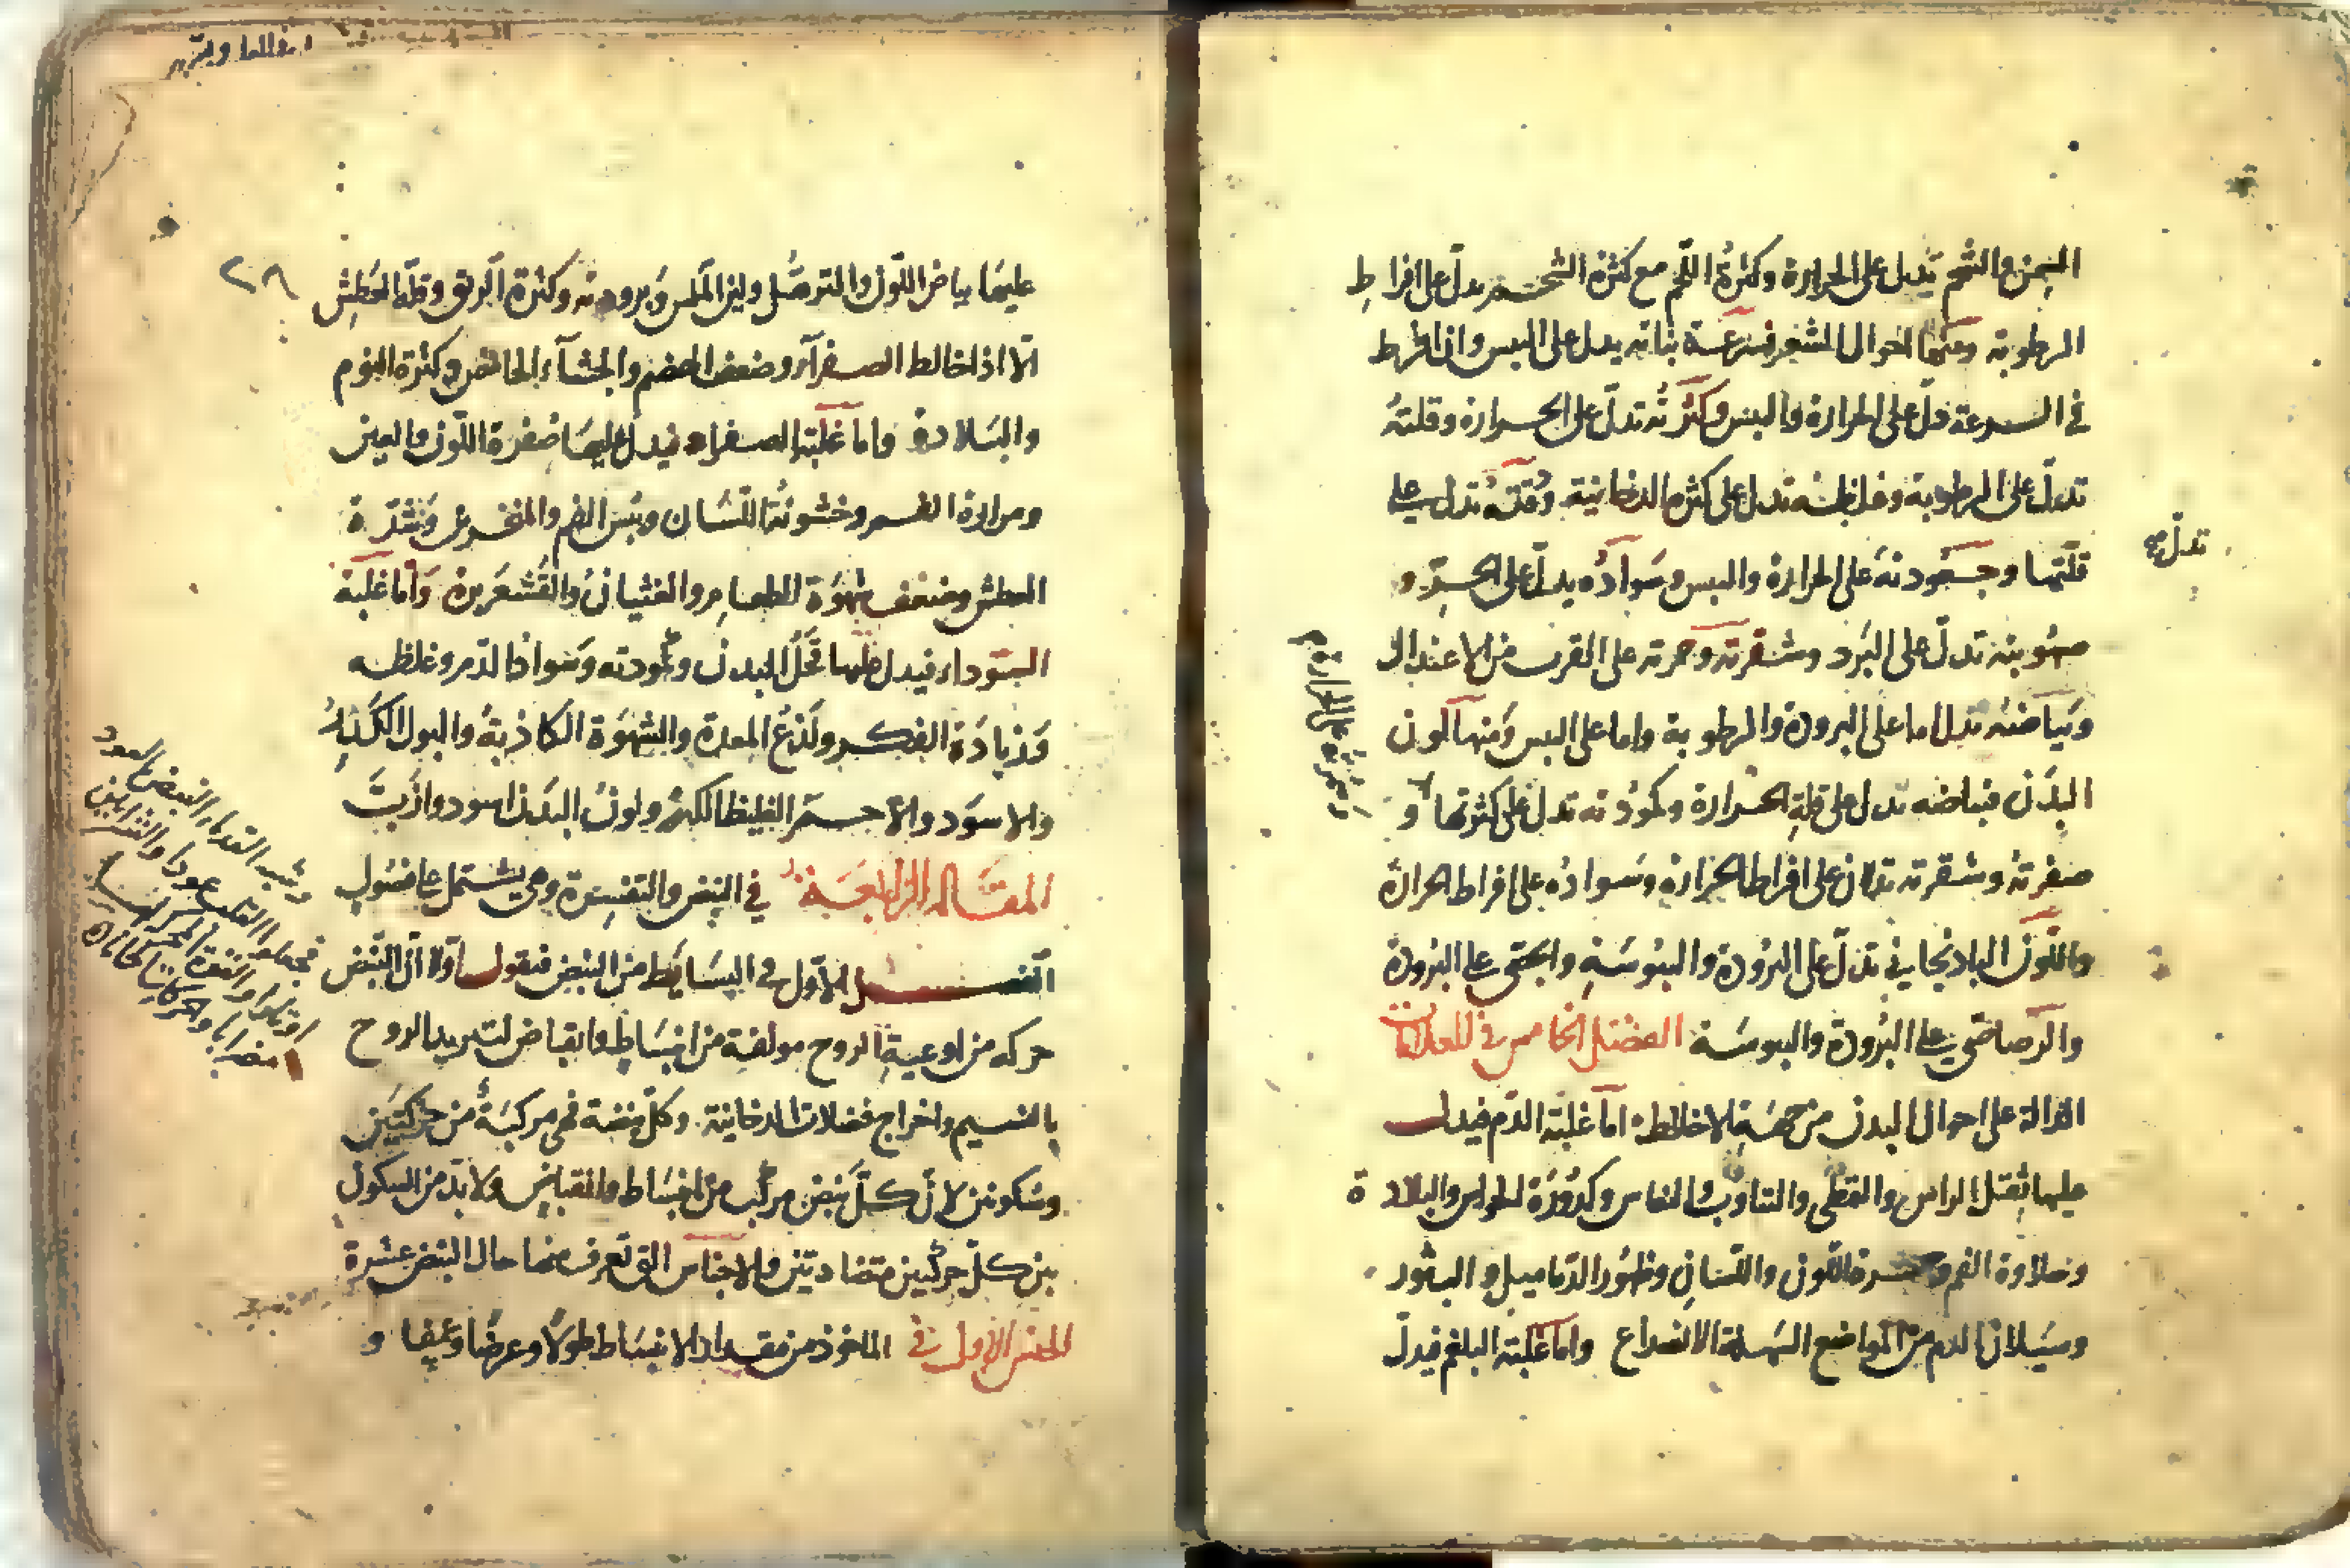 السمن والشحم تدل على الحرارة وكثرة اللحم مع كثرة الشحم يدل على افراط
الرطوبة ومنها احوال الشعر فسرعة نباته يدل على اليبس وان افرط
في السرعة دل على الحرارة واليبس وكثرته تدل على الحرارة وقلته
تدل على الرطوبة وغلظه تدل على كثرة الدخانية ورقته تدل على
قلتها وجعودته على الحرارة واليبس وسواده يدل على الحر و
صهوبته تدل على البرد وشقرته وحمرته على القرب من الاعتدال
وبياضه تدل اما على البرودة والرطوبة واما على اليبس ومنها لون
البدن فبياضه تدل على قلة الحرارة وكمودته تدل على كثرتها و
صفرته وشقرته تدلان على افراط الحرارة وسواده على افراط الحرارة
واللون الباذنجاني تدل على البرودة واليبوسة والجصي على البرودة
والرصاصي على البرودة واليبوسة الفصل الخامس في العلامات
الدالة على احوال البدن من جهة الاخلاط اما غلبة الدم فيدل
عليها ثقل الراس والتمطي والتثاوب والنعاس وكدورة الحواس والبلادة
وحلاوة الفم وحمرة اللون واللسان وظهور الدماميل والبثور
وسيلان الدم من المواضع السهلة الانصداع واما غلبة البلغم فيدل
تدل
٢٨
عليها بياض اللون والترهل ولين الملمس وبرودته وكثرة الريق وقلة العطش
الا اذا خالط الصفراء وضعف الهضم والجشاء الحامض وكثرة النوم
والبلادة واما غلبة الصفراء فيدل عليها صفرة اللون والعين
ومرارة الفم وخشونة اللسان ويبس الفم والمنخرين وشدة
العطش وضعف شهوة الطعام والغثيان والقشعريرة واما غلبة
السوداء فيدل عليها قحل البدن وكمودته وسواد الدم وغلظه
وزيادة الفكر ولذع المعدة والشهوة الكاذبة والبول الكمد
والاسود والاحمر الغليظ الكدر ولون البدن اسود وازب
المقالة الرابعة في النبض والتفسرة وهي يشتمل على فصول
الفصل الاول في البسائط من النبض فنقول اولا ان النبض
حركه من اوعية الروح مولفة من انبساط وانقباض لتبريد الروح
بالنسيم واخراج فضلات الدخانية وكل نبضة فهي مركبة من حركتين
وسكونين لان كل نبض مركب من انبساط وانقباض ولا بد من السكون
بين كل حركتين متضادتين والاجناس التي تعرف منها حال النبض عشرة
الجنس الاول في الماخوذ من مقدار الانبساط طولا وعرضا وعمقا و
وشبه القدماء النبض بالعود
فجعلوا القلب عودا والشرايين